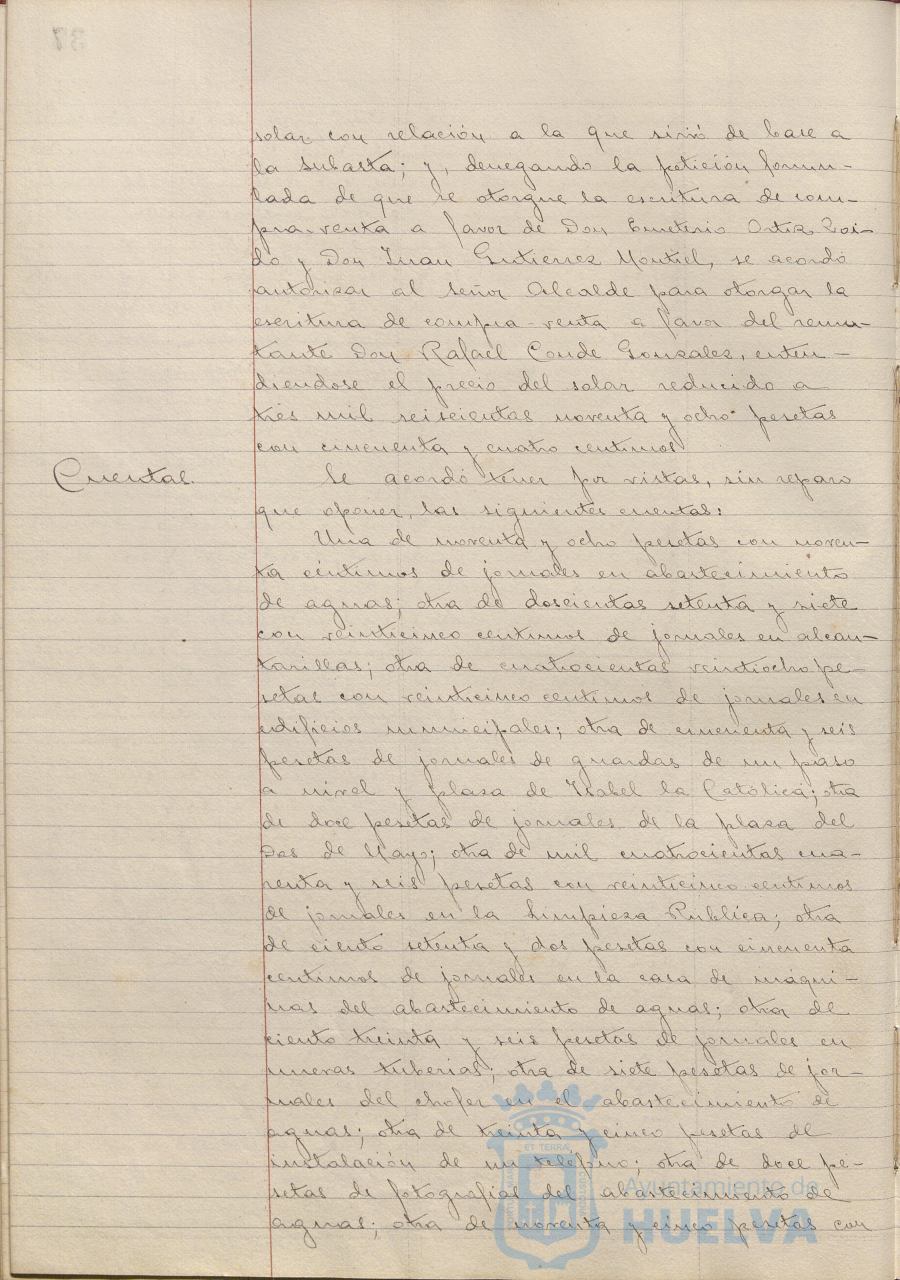 solar con relación a la que sirvió de base a
la subasta; y, denegando la petición formu-
lada de que se otorgue la escritura de com-
pra-venta a favor de Don Emeterio Ortiz Zoi-
do y Don Juan Gutierrez Montiel, se acordó
autorizar al señor Alcalde para otorgar la
escritura de compra-venta a favor del rema-
tante Don Rafael Conde Gonzalez, enten-
diendose el precio del solar reducido a
tres mil seiscientas noventa y ocho pesetas
con cincuenta y cuatro centimos
Cuentas. Se acordó tener por vistas, sin reparo
que oponer, las siguientes cuentas:
Una de noventa y ocho pesetas con noven-
ta centimos de jornales en abastecimiento
de aguas; otra de doscientas setenta y siete
con veinticinco centimos de jornales en alcan-
tarillas; otra de cuatrocientas veintiocho pe-
setas con veinticinco centimos de jornales en
edificios municipales; otra de cincuenta y seis
pesetas de jornales de guardas de un paso
a nivel y plaza de Isabel la Católica; otra
de doce pesetas de jornales de la plaza del
Dos de Mayo; otra de mil cuatrocientas cua-
renta y seis pesetas con veinticinco centimos
de jornales en la Limpieza Publica; otra
de ciento setenta y dos pesetas con cincuenta
centimos de jornales en la casa de maqui-
nas del abastecimiento de aguas; otra de
ciento treinta y seis pesetas de jornales en
nuevas tuberias; otra de siete pesetas de jor-
nales del chofer en el abastecimiento de
aguas; otra de treinta y cinco pesetas de
instalación de un teléfono; otra de doce pe-
setas de fotografias del abastecimiento de
aguas; otra de noventa y cinco pesetas con
Ayuntamiento de
HUELVA